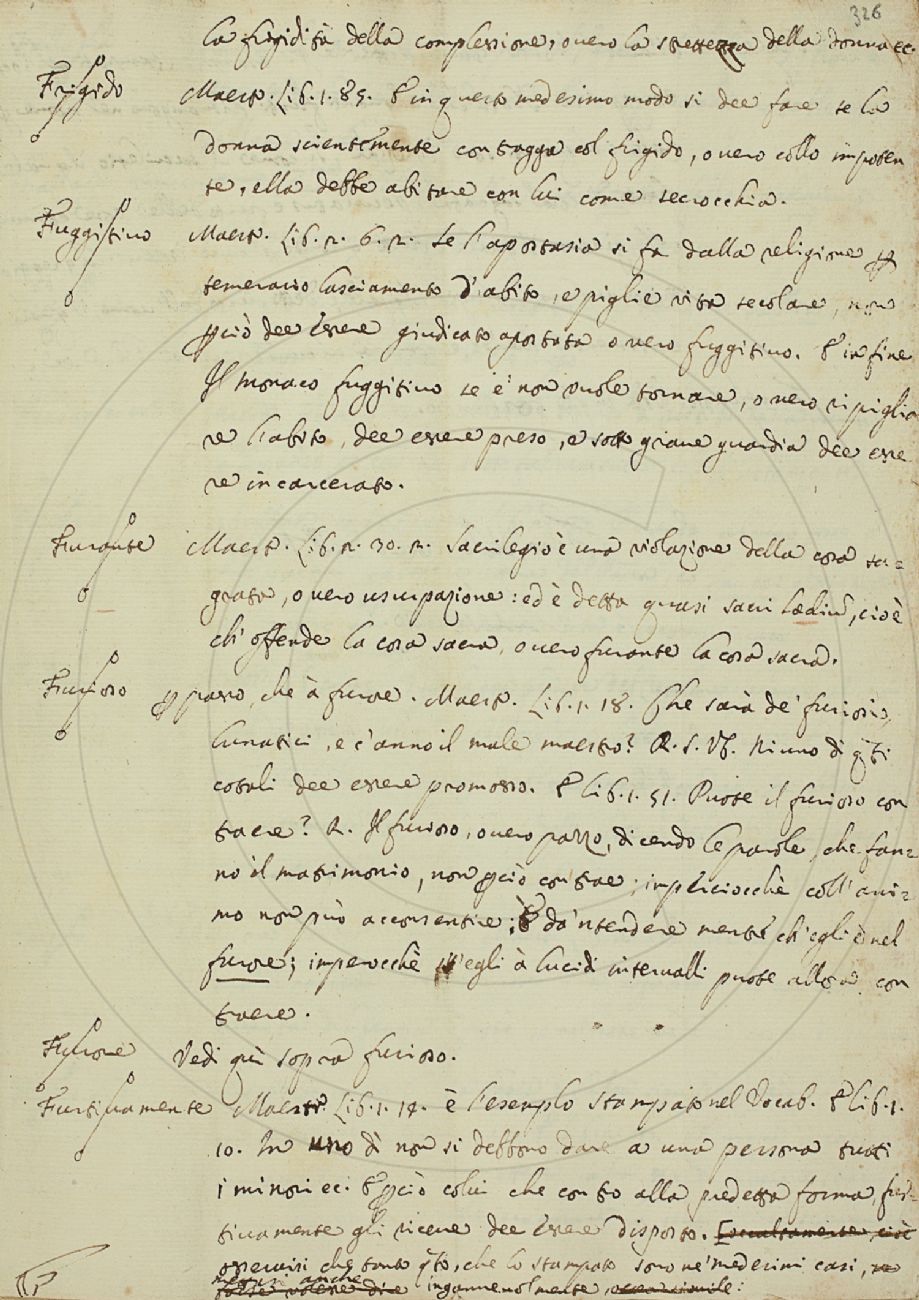 326
la frigidità della complessione, overo la strettezza della donna ec.
Frigido Maestr. Lib. 1. 85. E in questo medesimo modo si dee fare se la
donna scientemente contragga col frigido, overo collo impoten
te, ella debbe abitare con lui come serocchia.
Fuggitivo Maestr. Lib. 2. 6. 2. Se l'apostasia si fa dalla religione p
temerario lasciamento d'abito, e piglie vita secolare, non
pciò dee essere giudicato apostata overo fuggitivo. E in fine
Il monaco fuggitivo se e' non vuole tornare, overo ripiglia
re l'abito, dee essere preso, e sotto grave guardia dee esse
re incarcerato.
Furante Maestr. Lib. 2. 30. 2. Sacrilegio è una violazione della cosa sa=
grata, overo usurpazione: ed è detta quasi sacri lædiũ, cioè
chi offende la cosa sacra, overo furante la cosa sacra.
Furioso p pazzo, che à furore. Maestr. Lib. 1. 18. Che sarà de' furiosi,
lunatici, e c'anno il male maestro? R. S. Vlb. Niuno di q̃ti
cotali dee essere promosso. E lib. 1. 51. Puote il furioso con
traere? R. Il furioso, overo pazzo, dicendo le parole, che fan=
no il matrimonio, non pciò contrae; impliciocchè coll'ani=
mo non può acconsentire; E da'ntendere mentr' ch'egli è nel
furore; imperocchè s'egli à lucidi intervalli puote allora con
traere.
Furore Vedi più sopra furioso.
Furtivamente Maestr. Lib. 1. 14. è l'esemplo stampato nel Vocab. E lib. 1.
10. In uno dì non si debbono dare a una persona tutti
i minori ec. E pciò colui che contro alla predetta forma fur=
tivamente gli riceve dee essere disposto. Escultamente, cioè
osservisi che tanto q̃to, che lo stampato sono ne' medesimi casi,
mettasi anche
forse volere dire ingannevolmente,